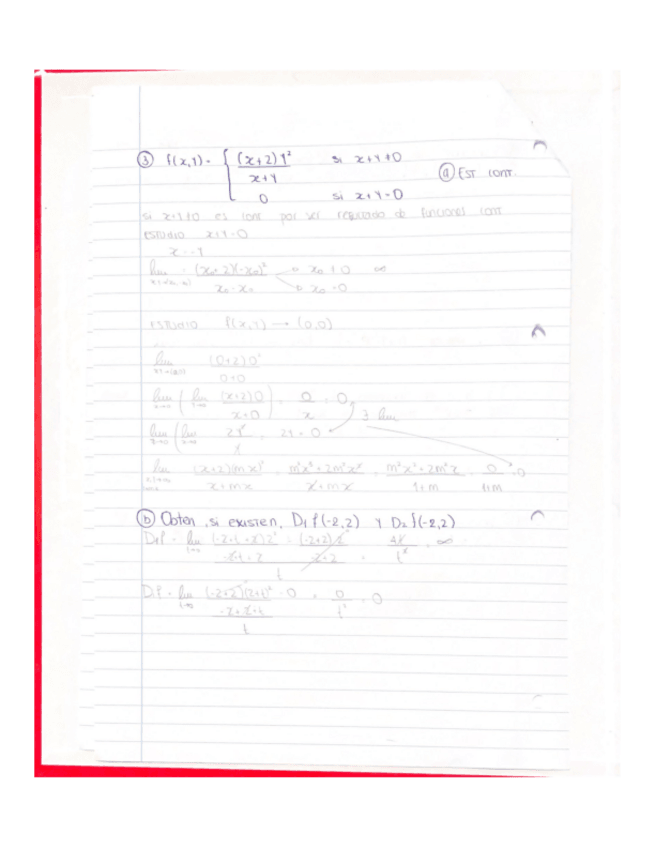 ③ f(x,y) = { (x+2)y² / x+y   si x+y≠0
0   si x+y=0
ⓐ EST cont.
si x+y≠0 es cont por ser de funciones cont
ESTUDIO x+y=0
x=-y
lim = (x₀+2)(-x₀)² / x₀-x₀ → x₀≠0 ∞
→ x₀=0
ESTUDIO f(x,y) → (0,0)
lim (0+2)0² / 0+0
lim ( lim (x+2)0 / x+0 ) = 0 / x = 0
lim ( lim 2y² / y = 2y = 0 3 lim
lim (x+2)(mx)² / x+mx = m²x³+2m²x² / x+mx = m²x²+2m²x / 1+m = 0 / 1+m = 0
ⓑ Obten, si existen, D₁f(-2,2) y D₂f(-2,2)
D₁f = lim (-2+t+2)2² / -2+t+2 - (-2+2) / -2+2 / t = 4t / t² = ∞
D₂f = lim (-2+2)(2+t)² / -2+2+t - 0 / t = 0 / t² = 0